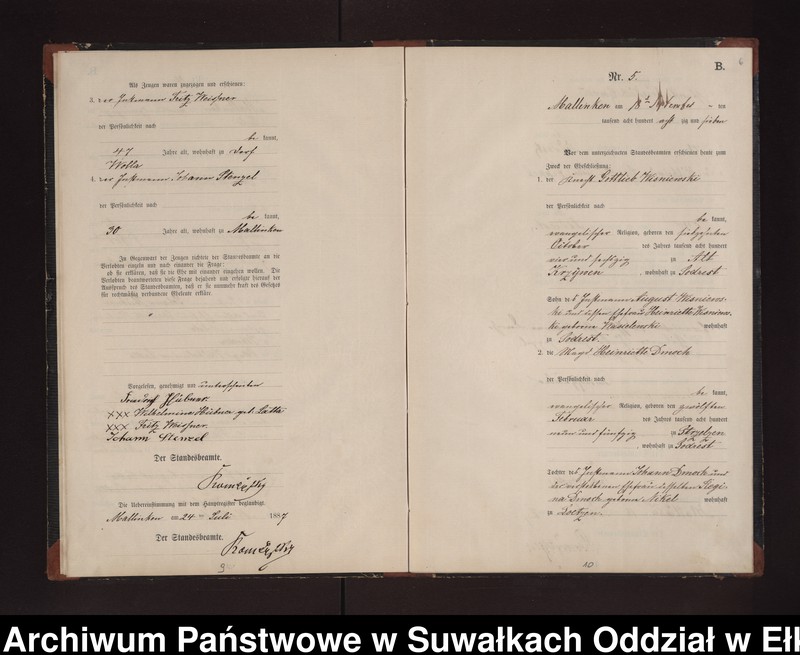 Als Zeugen waren zugezogen und erschienen:
3. der Instmann Fritz Weissner
der Persönlichkeit nach
be kannt,
47 Jahre alt, wohnhaft zu Dorf
Wolla
4. der Instmann Johann Stenzel
der Persönlichkeit nach
be kannt,
30 Jahre alt, wohnhaft zu Mallinken
In Gegenwart der Zeugen richtete der Standesbeamte an die
Verlobten einzeln und nach einander die Frage:
ob sie erklären, daß sie die Ehe mit einander eingehen wollen. Die
Verlobten beantworteten diese Frage bejahend und erfolgte hierauf der
Ausspruch des Standesbeamten, daß er sie nunmehr kraft des Gesetzes
für rechtmäßig verbundene Eheleute erkläre.
Vorgelesen, genehmigt und unterschrieben
Hübner
XXX Wilhelmine Hübner geb.
XXX Fritz Weissner
Johann
Der Standesbeamte.
Die Uebereinstimmung mit dem Hauptregister beglaubigt.
Mallinken am 24 ten Juli 1887
Der Standesbeamte.
9
B.
6
Nr. 5.
Mallinken am 18 ten November ten
tausend acht hundert acht zig und sieben
Vor dem unterzeichneten Standesbeamten erschienen heute zum
Zweck der Eheschließung:
1. der Knecht Gottlieb Wisniewski
der Persönlichkeit nach
be kannt,
evangelischer Religion, geboren den siebzehnten
October des Jahres tausend acht hundert
vier und sechszig zu Alt
Krzywen, wohnhaft zu Sodrest
Sohn des Instmanns August Wisniews-
ki und dessen Ehefrau Heinriette Wisniews-
ki geborene Wasielewski wohnhaft
zu Sodrest.
2. die Magd Heinriette Dmoch
der Persönlichkeit nach
be kannt,
evangelischer Religion, geboren den zwölften
Februar des Jahres tausend acht hundert
neun und fünfzig zu Strzelzen
, wohnhaft zu Sodrest
Tochter des Instmann Johann Dmoch und
der verstorbenen Ehefrau desselben Regi-
na Dmoch geborene Nikel wohnhaft
zu
10
Archiwum Państwowe w Suwałkach Oddział w Ełk